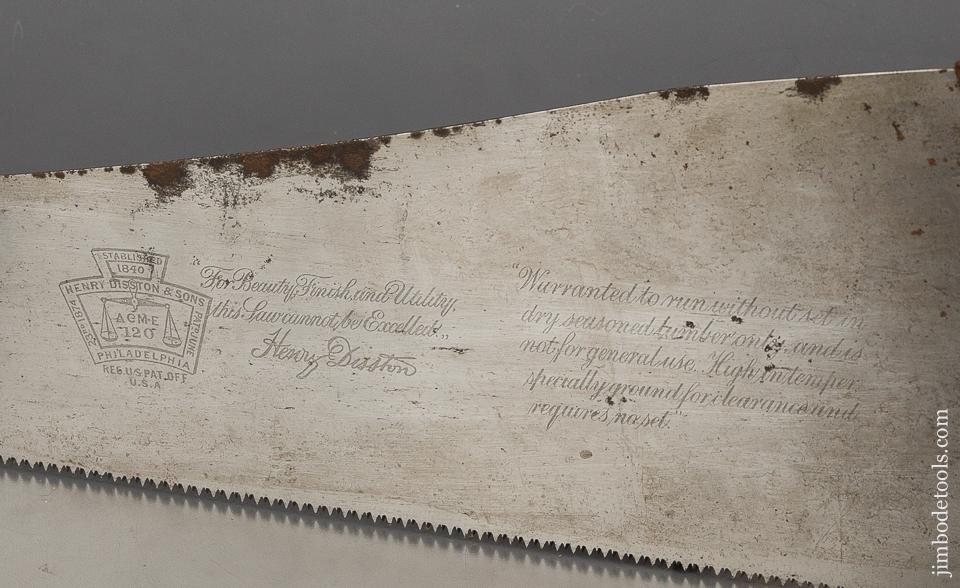 ESTABLISHED
1840
HENRY DISSTON & SONS
PAT. JUNE
ACME
120
PHILADELPHIA
REG. U.S. PAT. OFF.
U.S.A
"For Beauty, Finish, and Utility,
this Saw cannot be Excelled."
Henry Disston
"Warranted to run without set in
dry seasoned lumber only, and is
not for general use. High in temper
specially ground for clearance and
requires no set."
jimbodetools.com